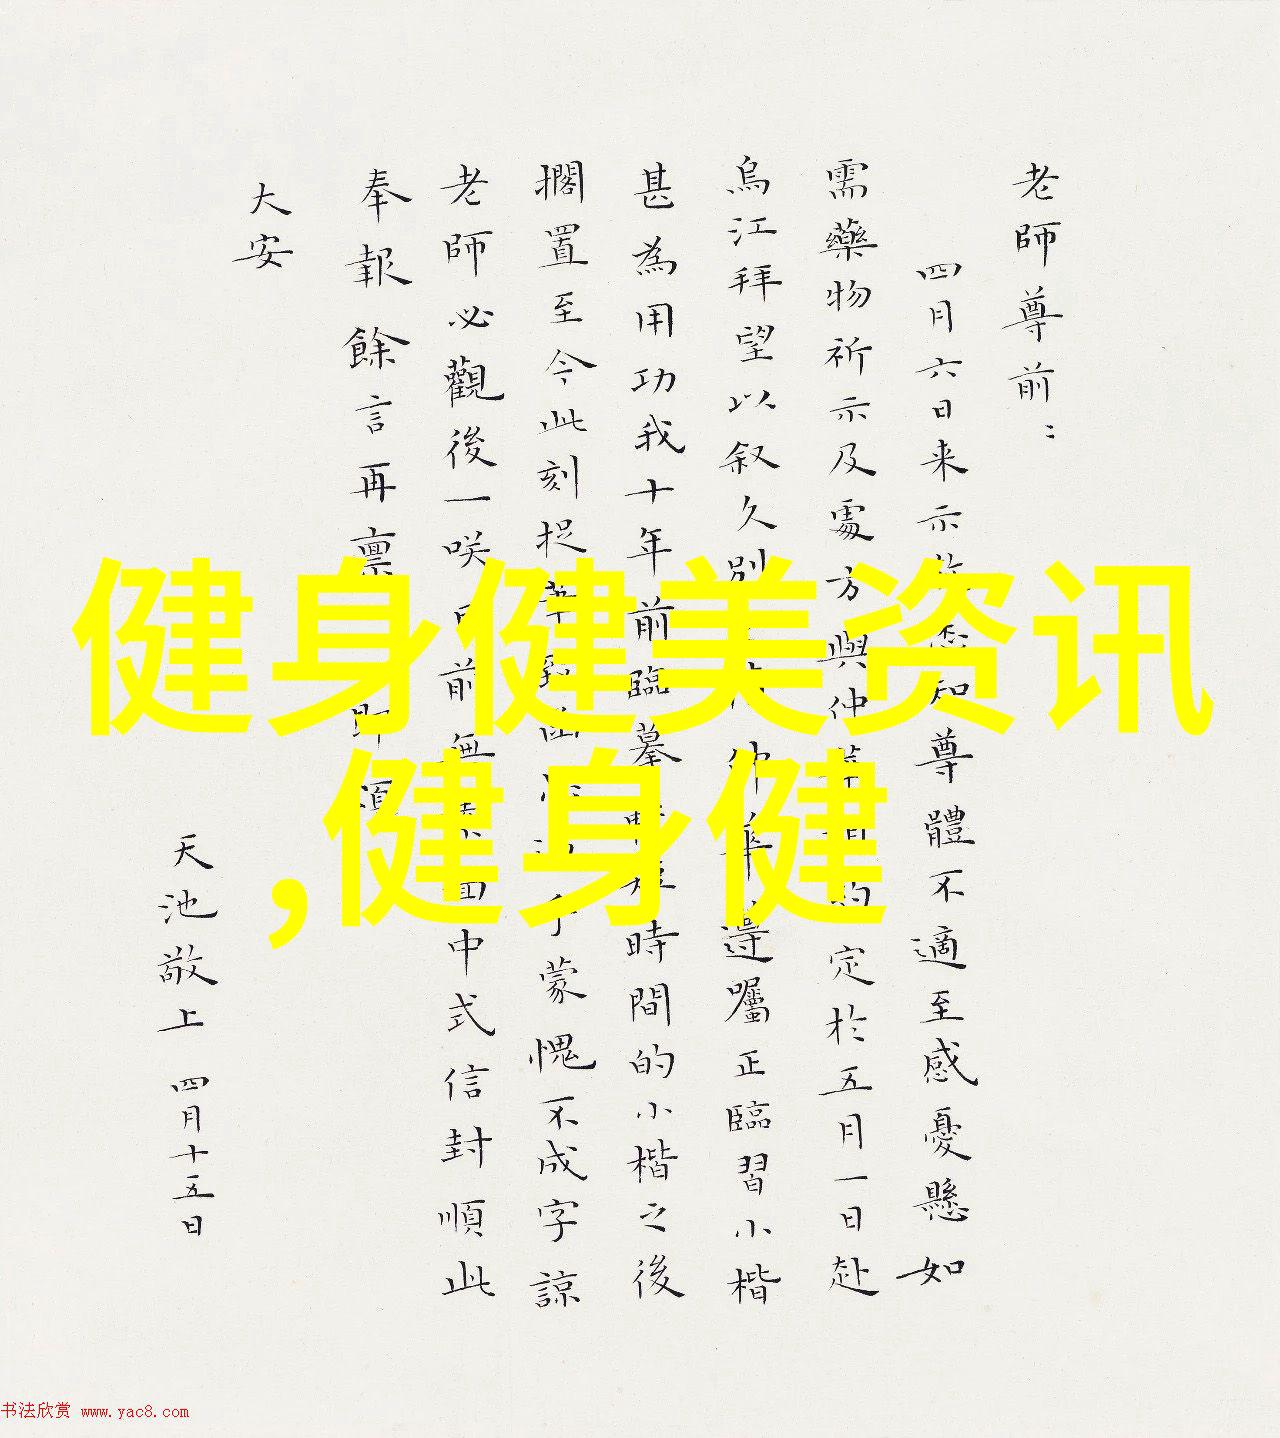 老師尊前：
四月六日来示知尊體不適至感憂懸如
需藥物祈示及處方與仲約定於五月一日赴
烏江拜望以叙久別仲華遵囑正臨習小楷
甚為用功我十年前臨摹時間的小楷之後
擱置至今此刻捉手蒙愧不成字諒
老師必觀後一咲前無中式信封順此
奉報餘言再禀即頌
大安
天池敬上 四月十五日
健身健美资讯
,健身健
书法欣赏 www.yac8.com